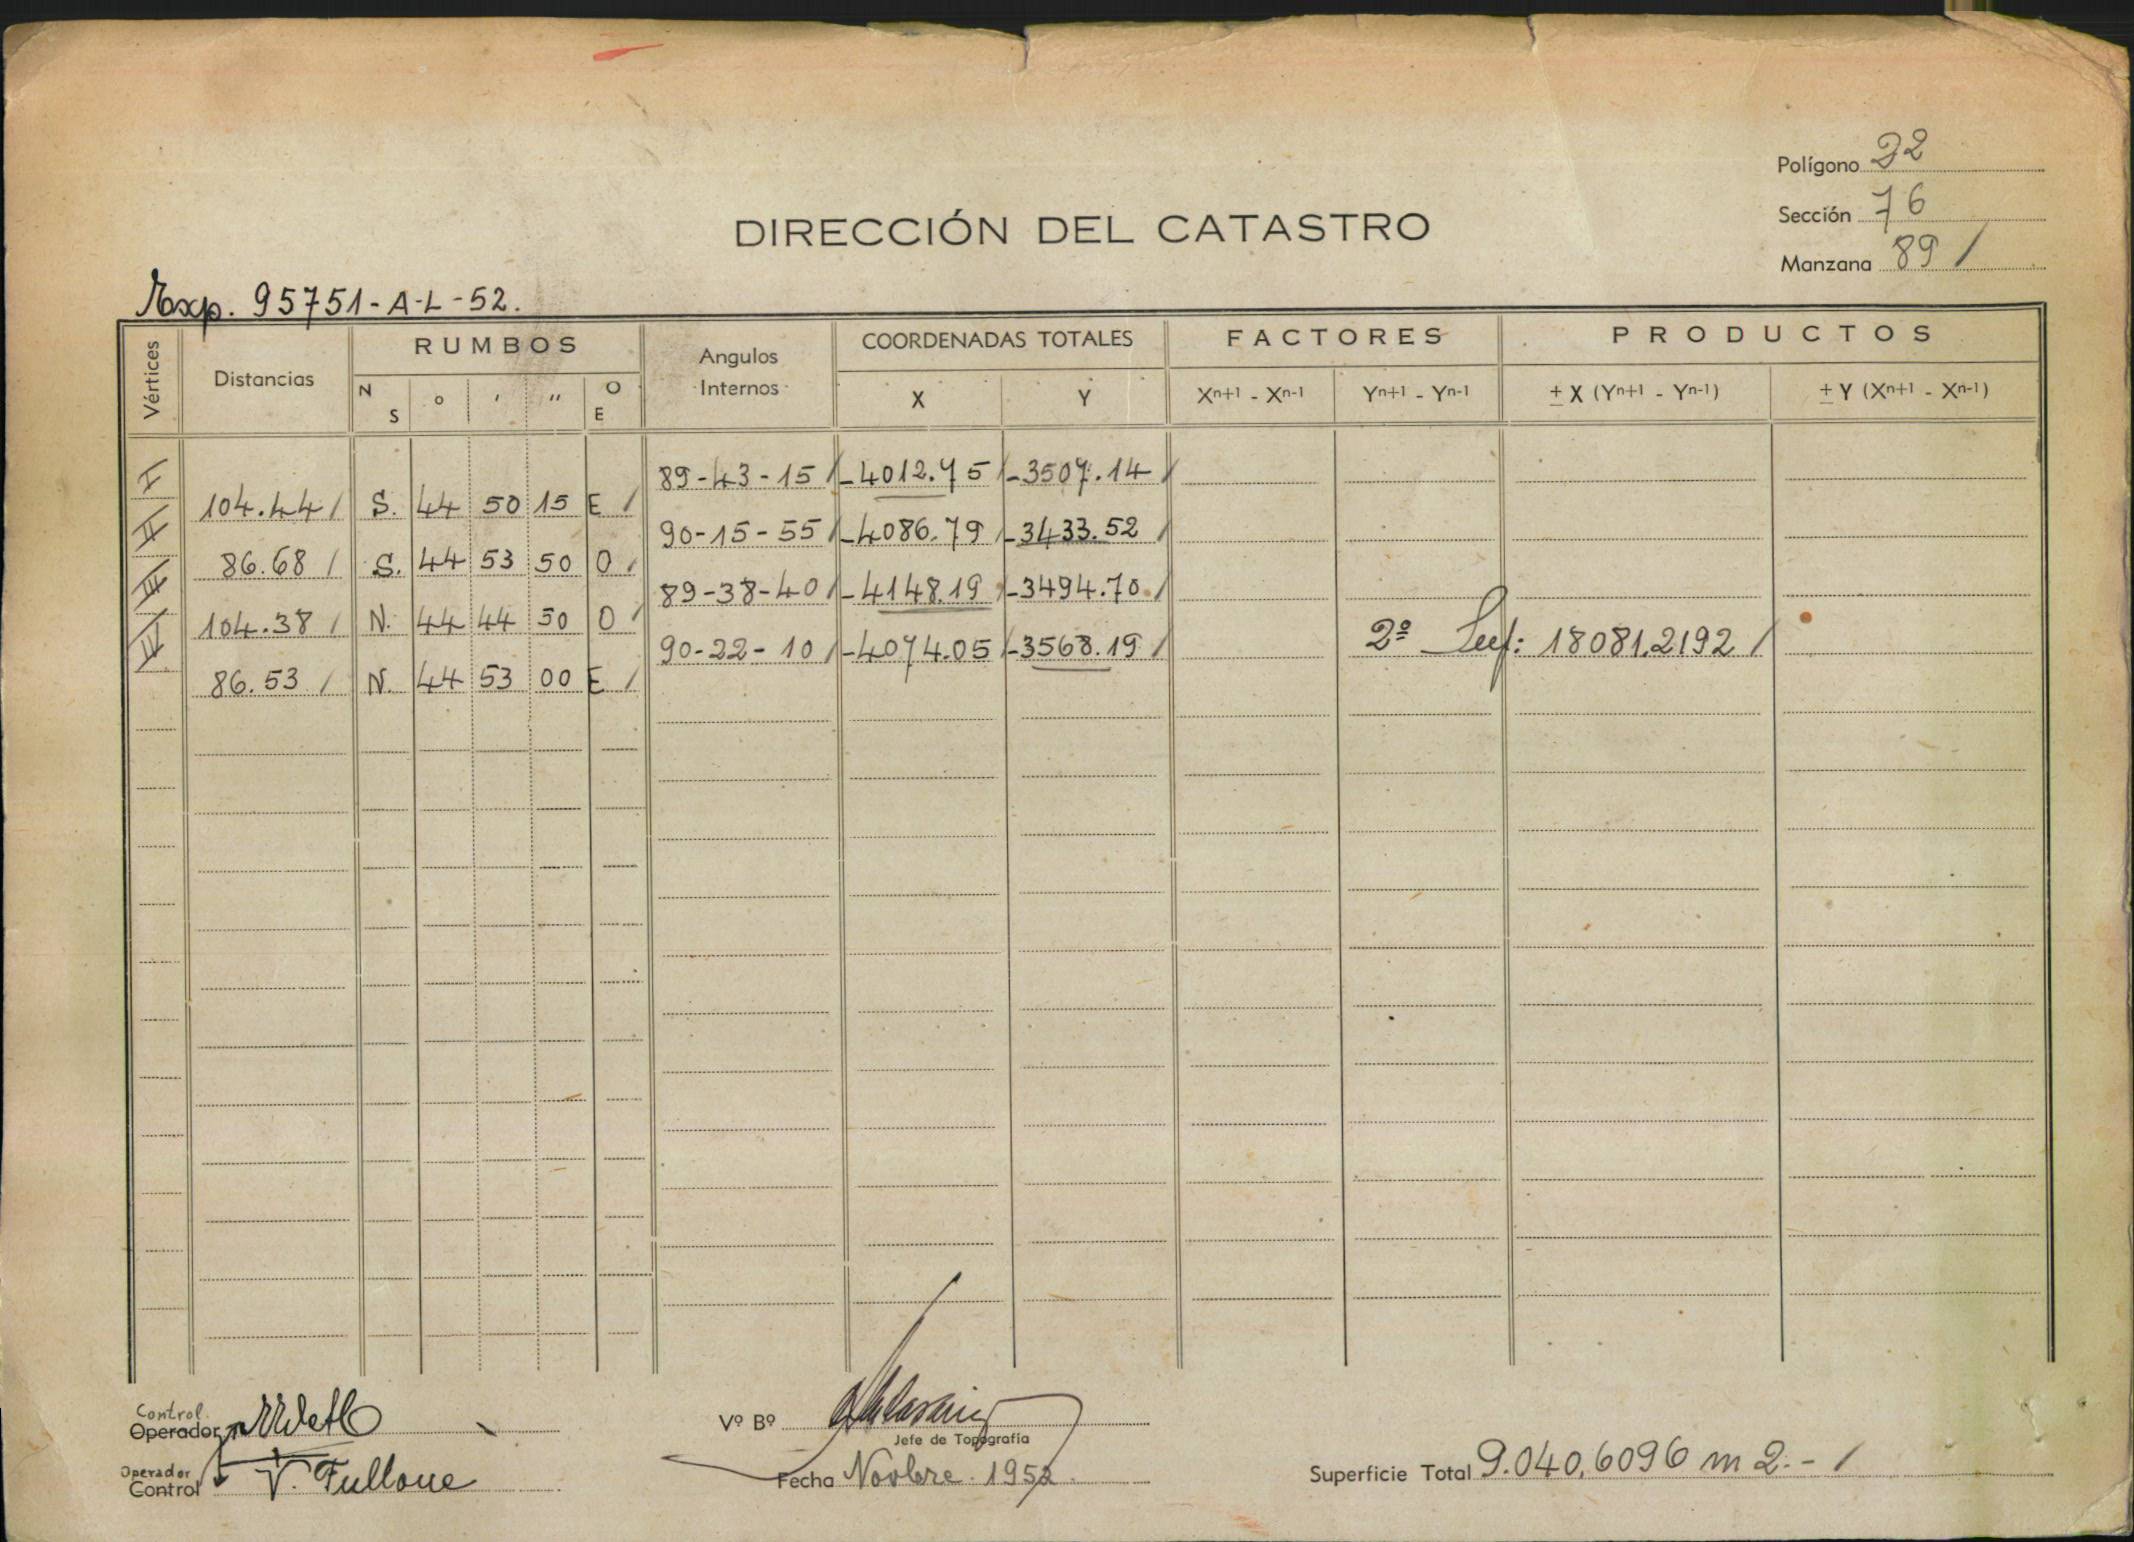 Polígono 22
Sección 76
Manzana 89 /
DIRECCIÓN DEL CATASTRO
Exp. 95751-A-L-52.
Vértices Distancias RUMBOS Angulos Internos COORDENADAS TOTALES FACTORES PRODUCTOS
N S o ' '' O E X Y Xn+1 - Xn-1 Yn+1 - Yn-1 ± X (Yn+1 - Yn-1) ± Y (Xn+1 - Xn-1)
I 89-43-15 / -4012.75 / -3507.14 /
104.44 / S. 44 50 15 E /
II 90-15-55 / -4086.79 / -3433.52 /
86.68 / S. 44 53 50 O /
III 89-38-40 / -4148.19 / -3494.70 /
104.38 / N. 44 44 50 O /
IV 90-22-10 / -4074.05 / -3568.19 / 2º Sup: 18081.2192 /
86.53 / N. 44 53 00 E /
Control
Operador
Vº Bº
Jefe de Topografía
Operador
Control V. Fullone
Fecha Novbre. 1952
Superficie Total 9.040,6096 m 2.- /